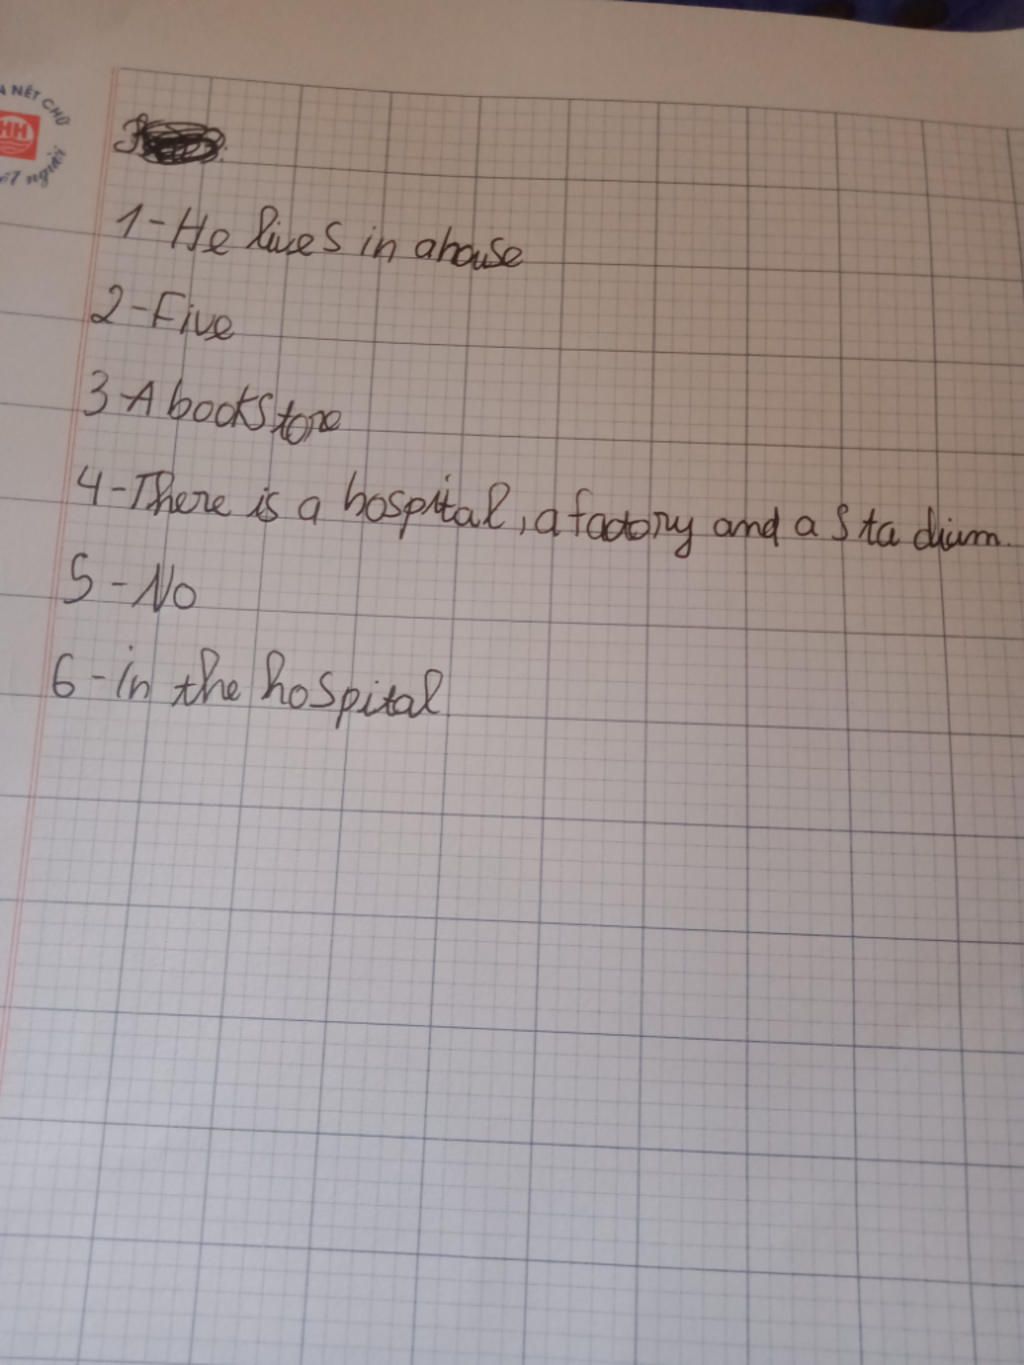 NÉT CHỮ
HH
người
1-He lives in a house
2-Five
3-A bookstore
4-There is a hospital, a factory and a stadium.
5-No
6-in the hospital